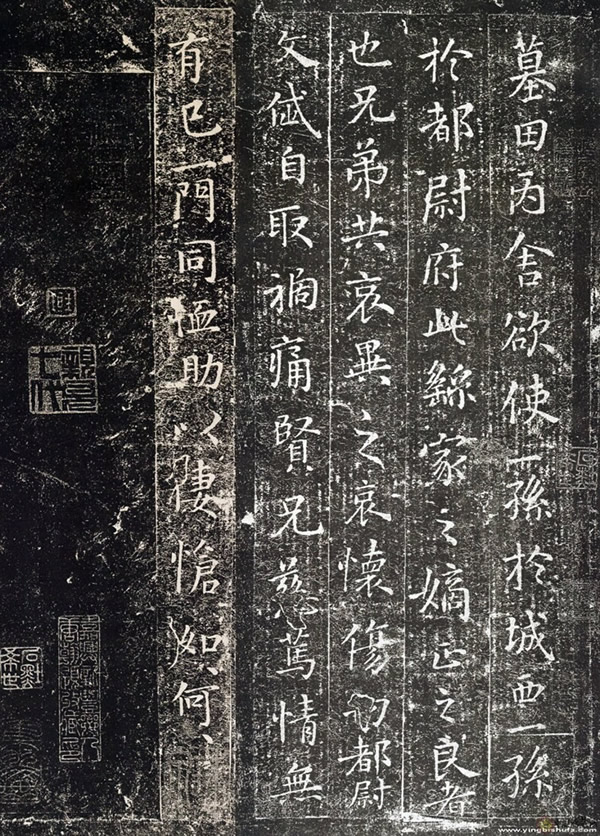 墓田丙舍欲使一孫於城西一孫
於都尉府此繇家之嫡正之良者
也兄弟共哀異之哀懷傷切都尉
文岱自取禍痛賢兄慈篤情無
有已一門同恤助以悽愴如何
www.yingbishufa.com